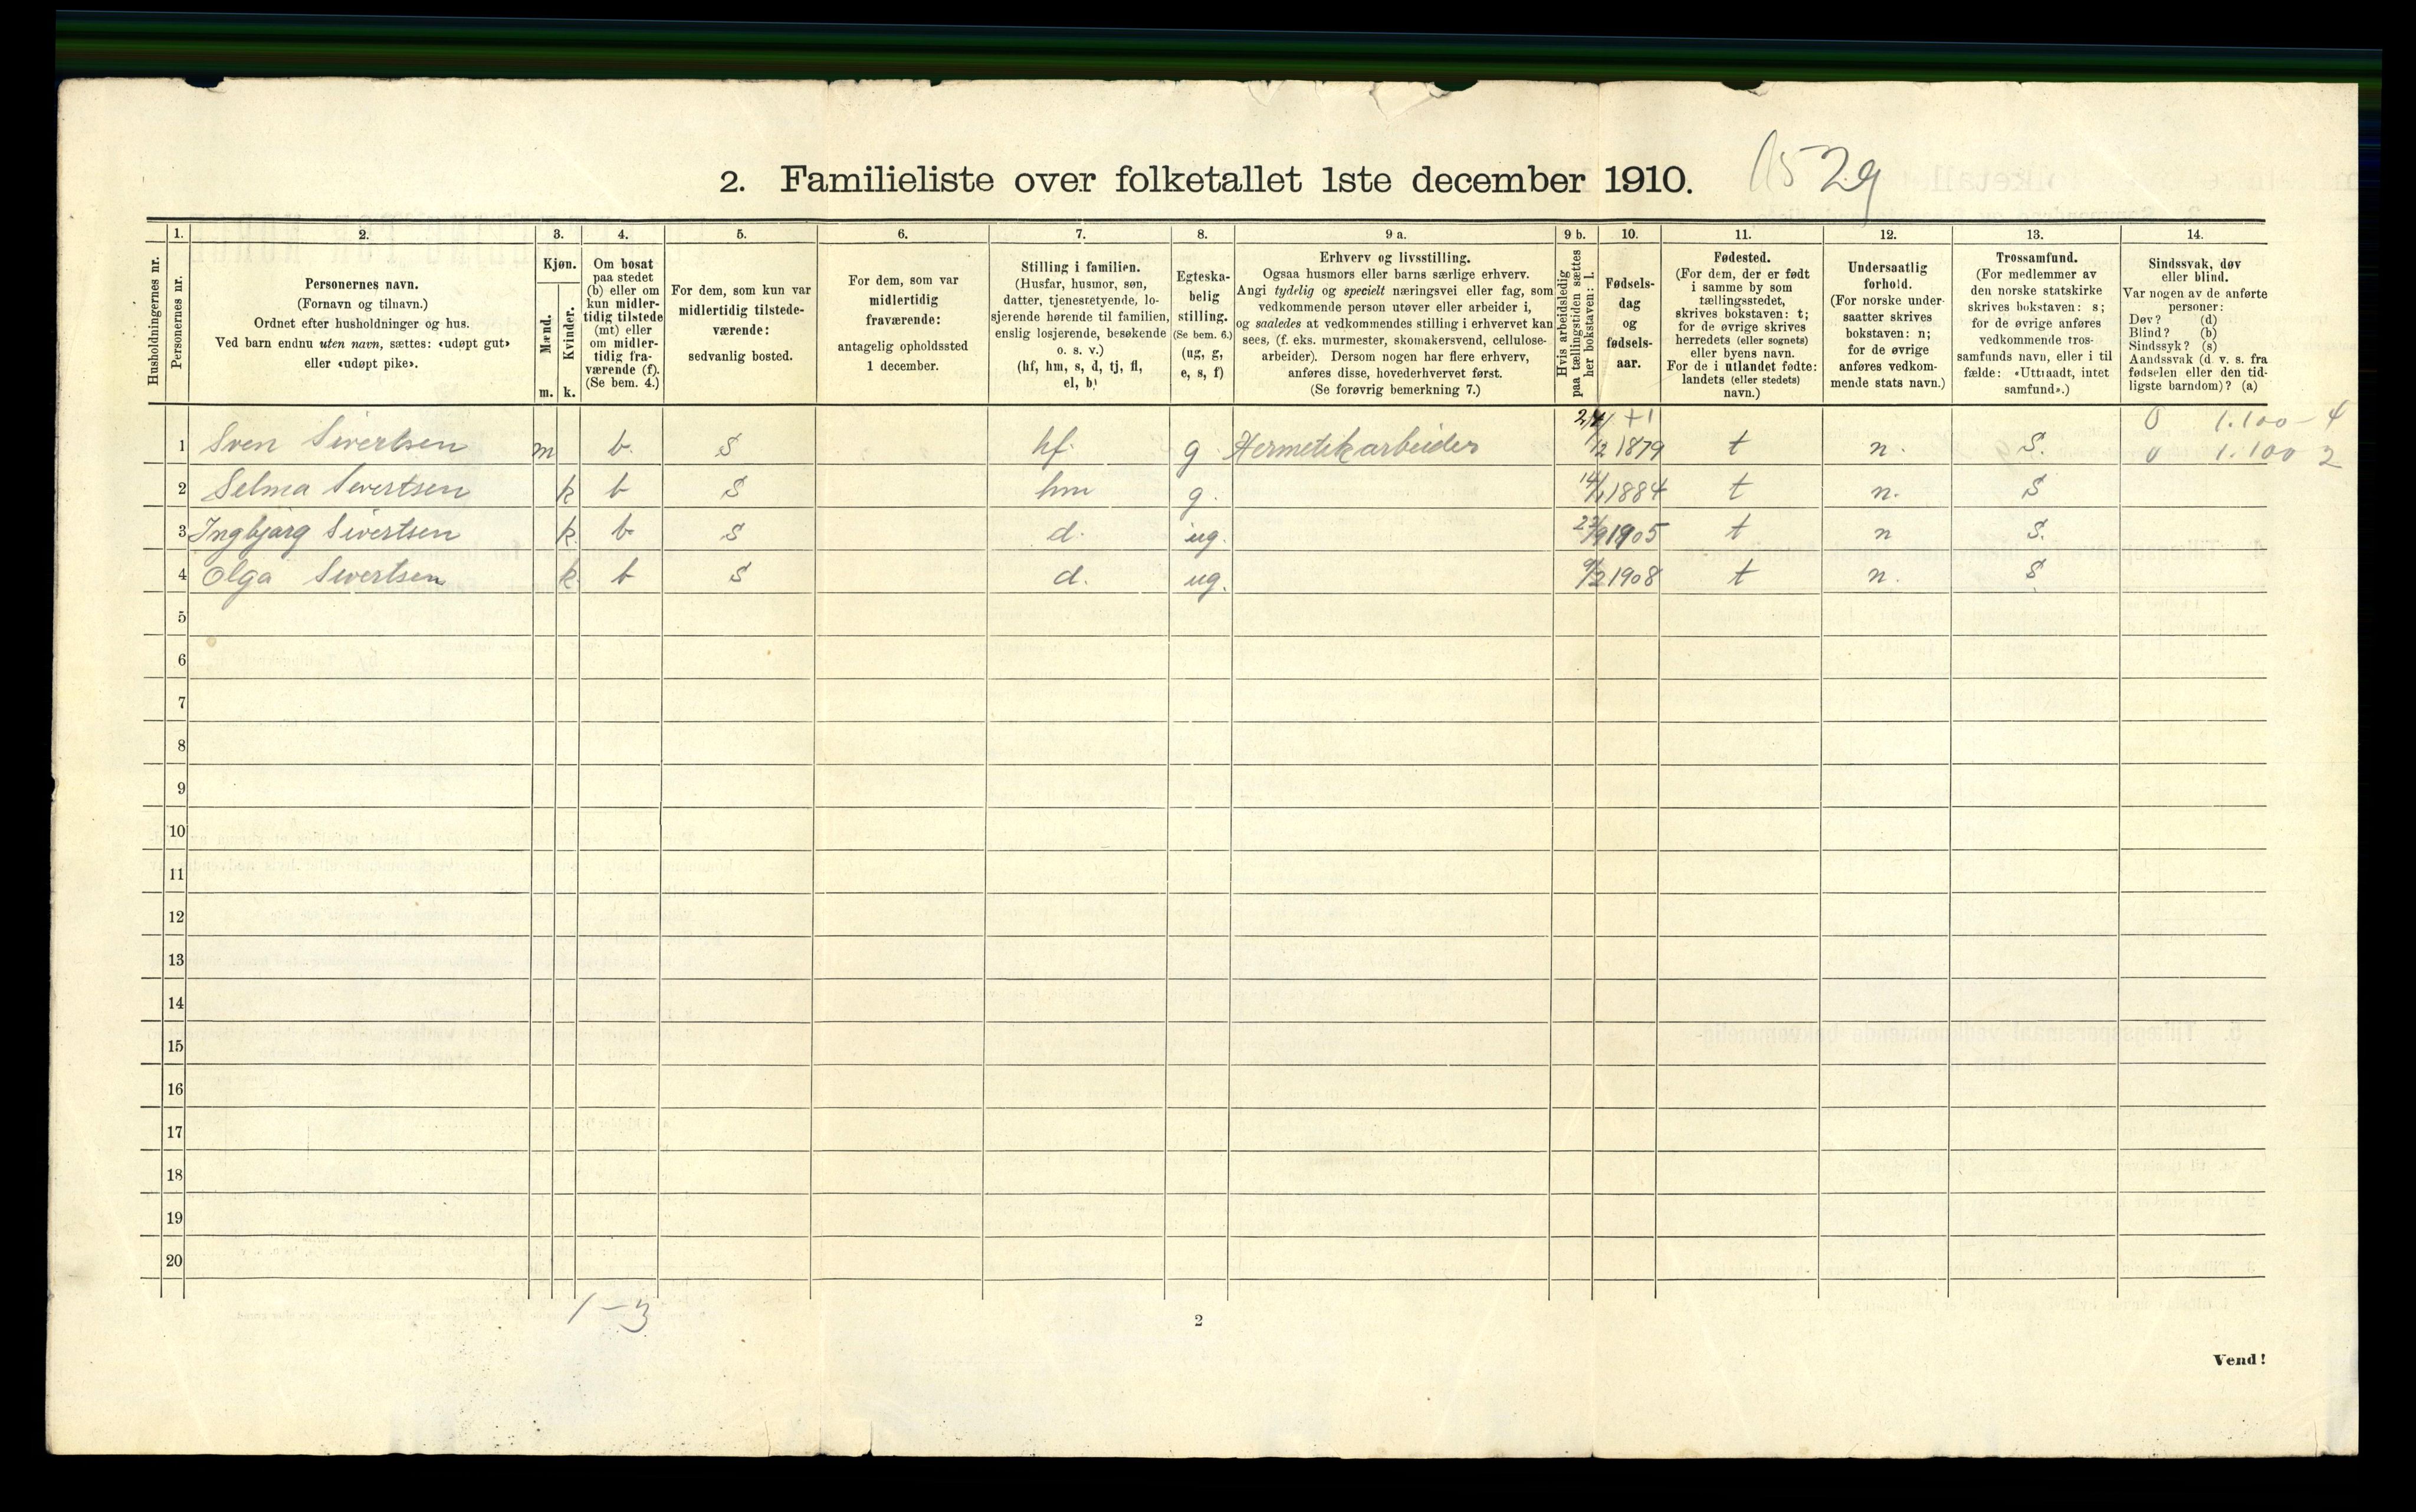 2. Familieliste over folketallet 1ste december 1910. 29
1. 2. 3. 4. 5. 6. 7. 8. 9 a. 9 b. 10. 11. 12. 13. 14.
Husholdningernes nr.
Personernes nr.
Personernes navn.
(Fornavn og tilnavn.)
Ordnet efter husholdninger og hus.
Ved barn endnu uten navn, sættes: «udøpt gut»
eller «udøpt pike».
Kjøn.
Mænd.
Kvinder.
m. k.
Om bosat
paa stedet
(b) eller om
kun midler-
tidig tilstede
(mt) eller
om midler-
tidig fra-
værende (f).
(Se bem. 4.)
For dem, som kun var
midlertidig tilstede-
værende:
sedvanlig bosted.
For dem, som var
midlertidig
fraværende:
antagelig opholdssted
1 december.
Stilling i familien.
(Husfar, husmor, søn,
datter, tjenestetyende, lo-
sjerende hørende til familien,
enslig losjerende, besøkende
o. s. v.)
(hf, hm, s, d, tj, fl,
el, b)
Egteska-
belig
stilling.
(Se bem. 6.)
(ug, g,
e, s, f)
Erhverv og livsstilling.
Ogsaa husmors eller barns særlige erhverv.
Angi tydelig og specielt næringsvei eller fag, som
vedkommende person utøver eller arbeider i,
og saaledes at vedkommendes stilling i erhvervet kan
sees, (f. eks. murmester, skomakersvend, cellulose-
arbeider). Dersom nogen har flere erhverv,
anføres disse, hovederhvervet først.
(Se forøvrig bemerkning 7.)
Hvis arbeidsledig
paa tællingstiden sættes
her bokstaven: l.
Fødsels-
dag
og
fødsels-
aar.
Fødested.
(For dem, der er født
i samme by som
tællingsstedet,
skrives bokstaven: t;
for de øvrige skrives
herredets (eller sognets)
eller byens navn.
For de i utlandet fødte:
landets (eller stedets)
navn.)
Undersaatlig
forhold.
(For norske under-
saatter skrives
bokstaven: n;
for de øvrige
anføres vedkom-
mende stats navn.)
Trossamfund.
(For medlemmer av
den norske statskirke
skrives bokstaven: s;
for de øvrige anføres
vedkommende tros-
samfunds navn, eller i til
fælde: «Uttraadt, intet
samfund».)
Sindssvak, døv
eller blind.
Var nogen av de anførte
personer:
Døv? (d)
Blind? (b)
Sindssyk? (s)
Aandssvak (d. v. s. fra
fødselen eller den tid-
ligste barndom)? (a)
+1 0 1.100-4
1 Sven Sivertsen m b. S hf. g Hermetikarbeider 1/2 1879 t n. S. 0 1.100 2
2 Selma Sivertsen k b S hm g. 14/1 1884 t n. S
3 Ingbjørg Sivertsen k. b S d. ug. 1905 t n S.
4 Olga Sivertsen k. b S d. ug. 9/2 1908 t n. S
5
6
7
8
9
10
11
12
13
14
15
16
17
18
19
20
1-3
2
Vend!